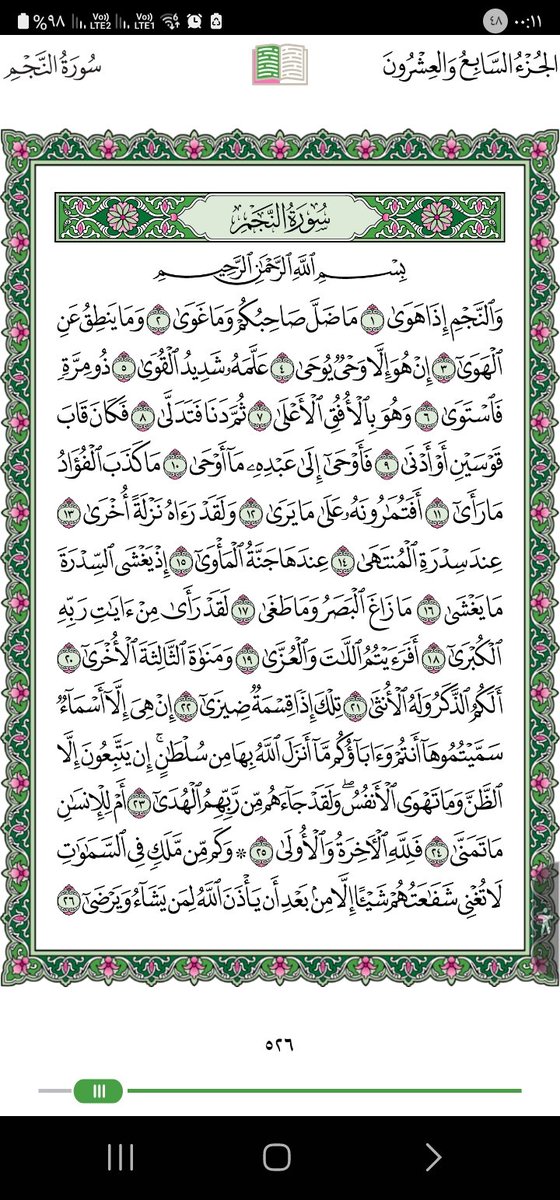 %٩٨ Vo)) LTE2 Vo)) LTE1 6 ٤٨ ٠٠:١١
الجُزْءُ السَّابِعُ وَالعِشْرُونَ سُورَةُ النَّجْمِ
سُورَةُ النَّجْمِ
بِسْمِ ٱللَّهِ ٱلرَّحْمَٰنِ ٱلرَّحِيمِ
وَٱلنَّجْمِ إِذَا هَوَىٰ ١ مَا ضَلَّ صَاحِبُكُمْ وَمَا غَوَىٰ ٢ وَمَا يَنطِقُ عَنِ
ٱلْهَوَىٰٓ ٣ إِنْ هُوَ إِلَّا وَحْيٌ يُوحَىٰ ٤ عَلَّمَهُۥ شَدِيدُ ٱلْقُوَىٰ ٥ ذُو مِرَّةٍ
فَٱسْتَوَىٰ ٦ وَهُوَ بِٱلْأُفُقِ ٱلْأَعْلَىٰ ٧ ثُمَّ دَنَا فَتَدَلَّىٰ ٨ فَكَانَ قَابَ
قَوْسَيْنِ أَوْ أَدْنَىٰ ٩ فَأَوْحَىٰٓ إِلَىٰ عَبْدِهِۦ مَآ أَوْحَىٰ ١٠ مَا كَذَبَ ٱلْفُؤَادُ
مَا رَأَىٰٓ ١١ أَفَتُمَٰرُونَهُۥ عَلَىٰ مَا يَرَىٰ ١٢ وَلَقَدْ رَءَاهُ نَزْلَةً أُخْرَىٰ ١٣
عِندَ سِدْرَةِ ٱلْمُنتَهَىٰ ١٤ عِندَهَا جَنَّةُ ٱلْمَأْوَىٰٓ ١٥ إِذْ يَغْشَى ٱلسِّدْرَةَ
مَا يَغْشَىٰ ١٦ مَا زَاغَ ٱلْبَصَرُ وَمَا طَغَىٰ ١٧ لَقَدْ رَأَىٰ مِنْ ءَايَٰتِ رَبِّهِ
ٱلْكُبْرَىٰٓ ١٨ أَفَرَءَيْتُمُ ٱللَّٰتَ وَٱلْعُزَّىٰ ١٩ وَمَنَوٰةَ ٱلثَّالِثَةَ ٱلْأُخْرَىٰٓ ٢٠
أَلَكُمُ ٱلذَّكَرُ وَلَهُ ٱلْأُنثَىٰ ٢١ تِلْكَ إِذًا قِسْمَةٌ ضِيزَىٰٓ ٢٢ إِنْ هِيَ إِلَّآ أَسْمَآءٌ
سَمَّيْتُمُوهَآ أَنتُمْ وَءَابَآؤُكُم مَّآ أَنزَلَ ٱللَّهُ بِهَا مِن سُلْطَٰنٍ ۚ إِن يَتَّبِعُونَ إِلَّا
ٱلظَّنَّ وَمَا تَهْوَى ٱلْأَنفُسُ ۖ وَلَقَدْ جَآءَهُم مِّن رَّبِّهِمُ ٱلْهُدَىٰٓ ٢٣ أَمْ لِلْإِنسَٰنِ
مَا تَمَنَّىٰ ٢٤ فَلِلَّهِ ٱلْءَاخِرَةُ وَٱلْأُولَىٰ ٢٥ ۞ وَكَم مِّن مَّلَكٍ فِي ٱلسَّمَٰوَٰتِ
لَا تُغْنِي شَفَٰعَتُهُمْ شَيْـًٔا إِلَّا مِنۢ بَعْدِ أَن يَأْذَنَ ٱللَّهُ لِمَن يَشَآءُ وَيَرْضَىٰٓ ٢٦
٥٢٦